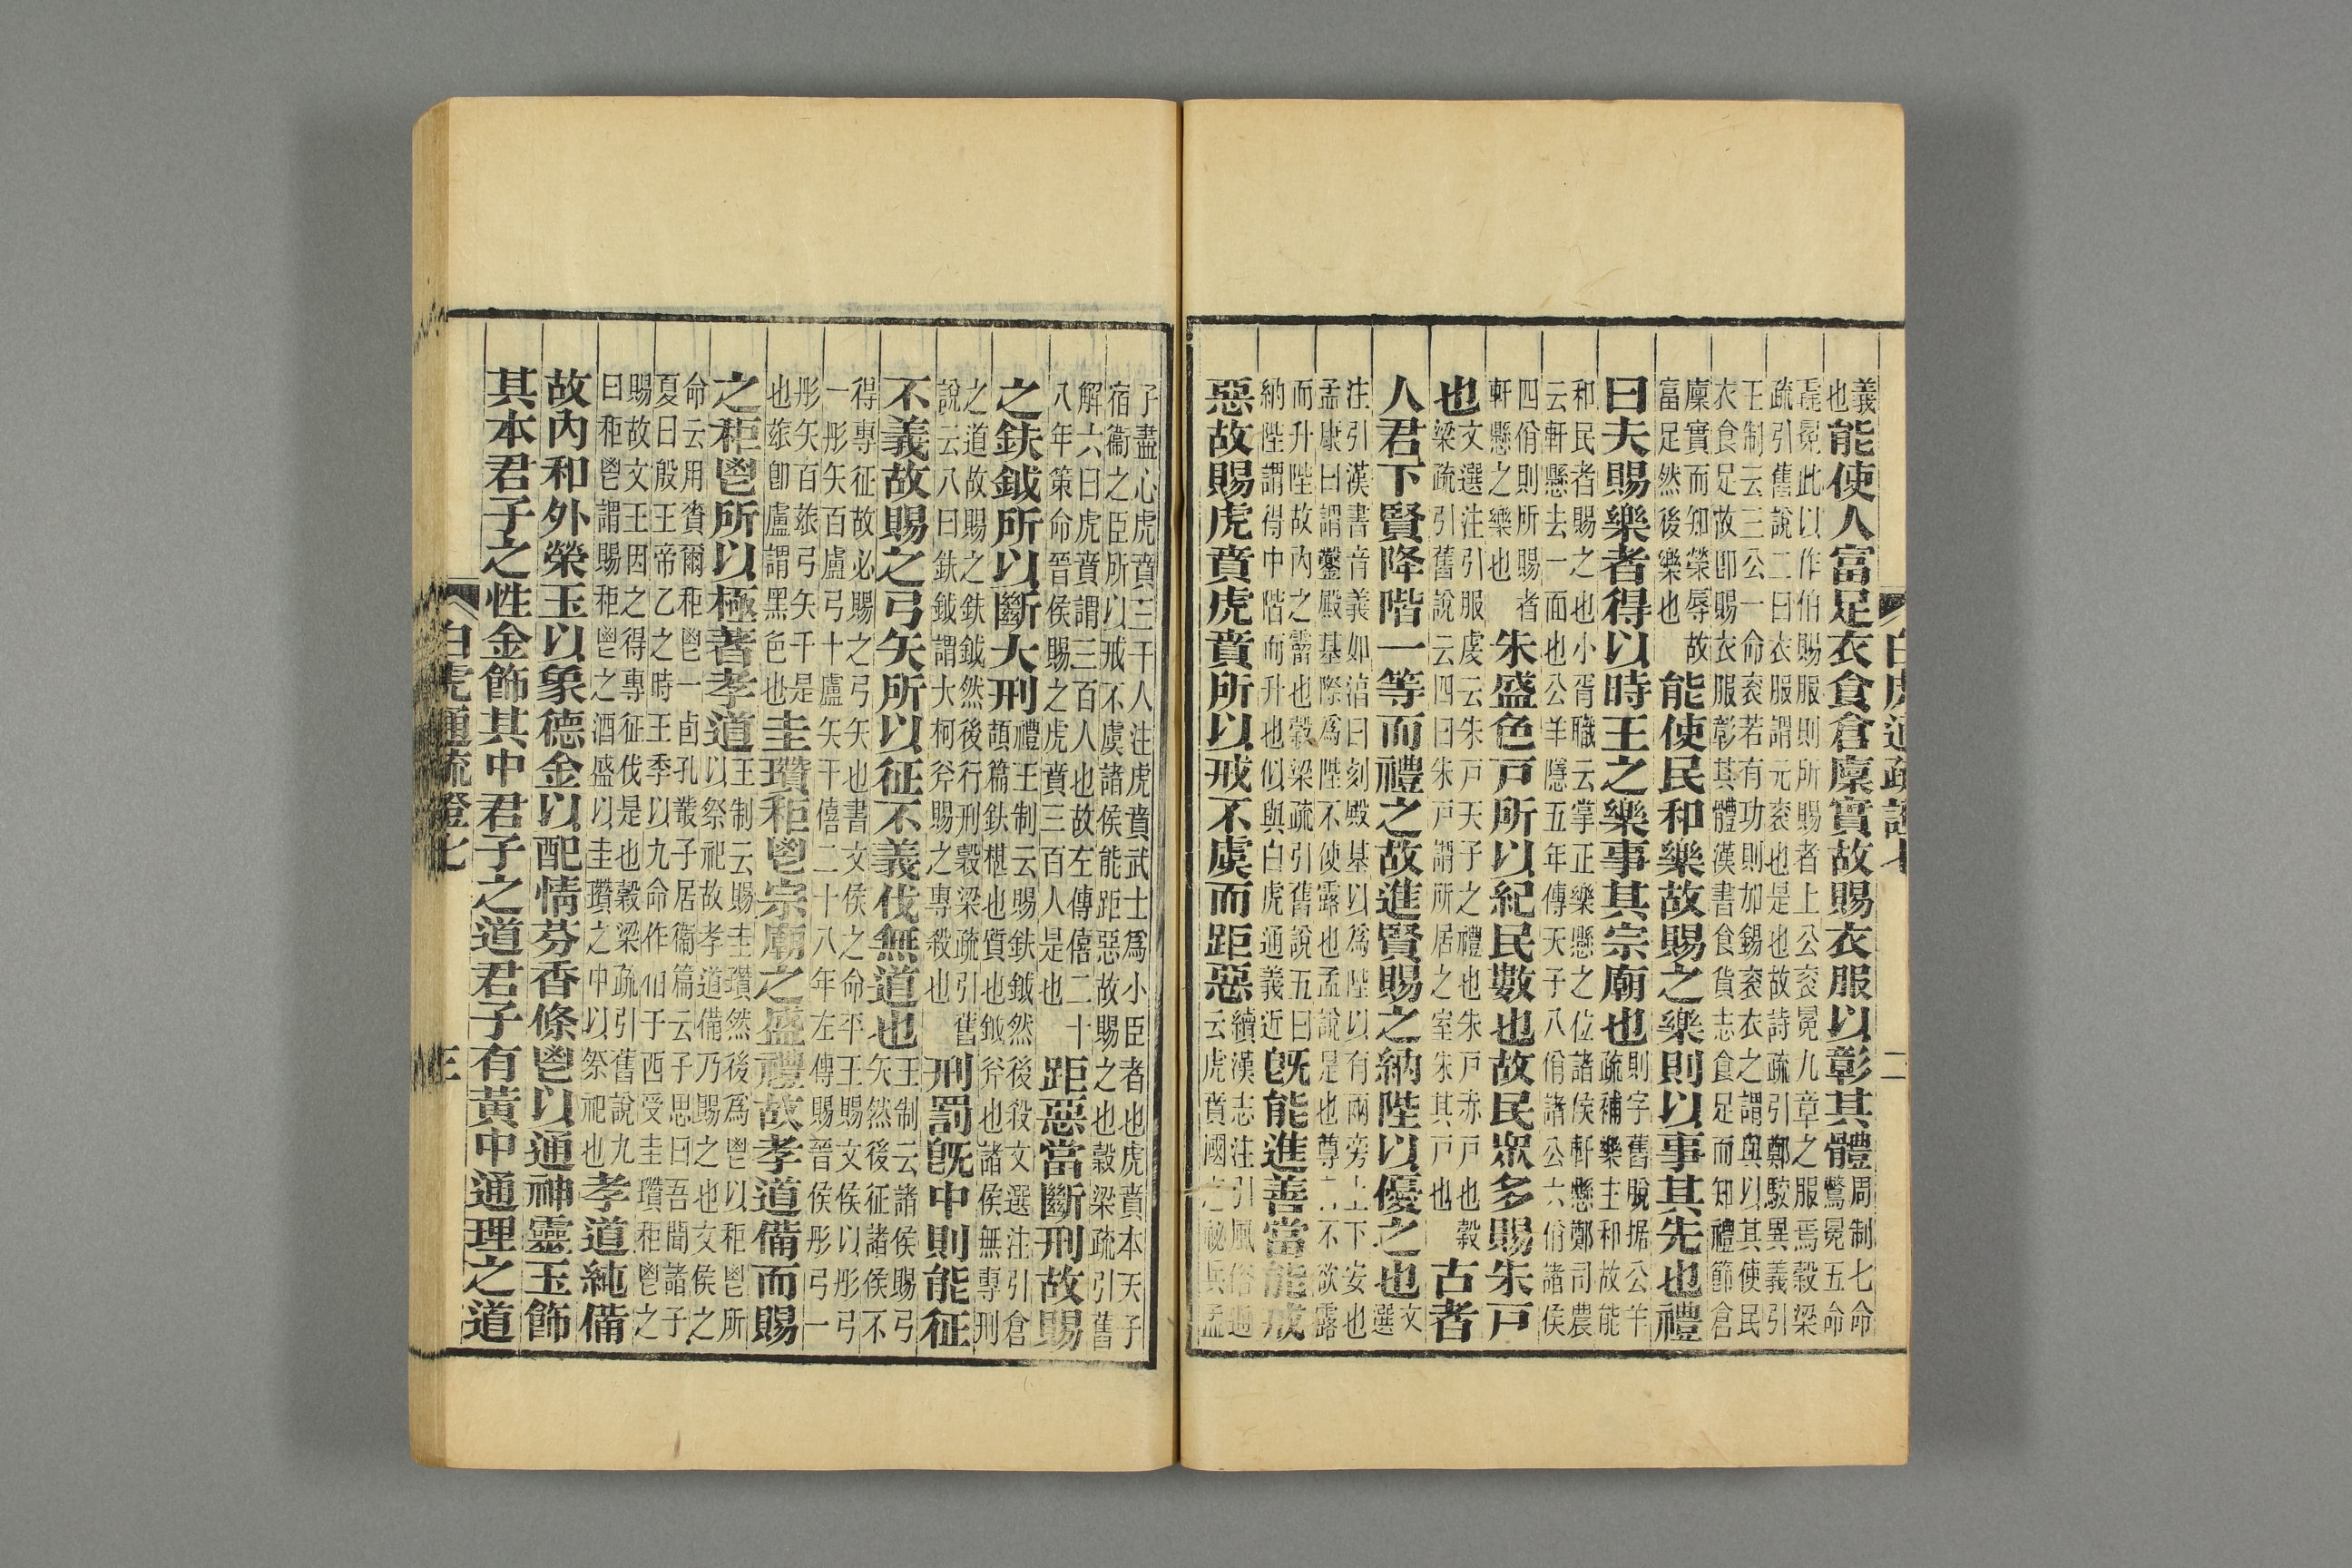 白虎通疏證七 二
義
也
能使人富足衣食倉廩實故賜衣服以彰其體
周制七命
鷩冕五命
毳冕此以作伯賜服則所賜者上公衮冕九章之服焉穀梁
疏引舊說二曰衣服謂元衮也是也故詩疏引鄭駮異義引
王制云三公一命衮若有功則加錫衮衣之謂與以其使民
衣食足故卽賜衣服彰其體漢書食貨志食足而知禮節倉
廩實而知榮辱故
富足然後樂也
能使民和樂故賜之樂則以事其先也禮
曰夫賜樂者得以時王之樂事其宗廟也
則字舊脫据公羊
疏補樂主和故能
和民者賜之也小胥職云掌正樂懸之位諸侯軒懸鄭司農
云軒懸去一面也公羊隱五年傳天子八佾諸公六佾諸侯
四佾則所賜者
軒懸之樂也
朱盛色戸所以紀民數也故民眾多賜朱戸
也
文選注引服虔云朱戸天子之禮也朱戸赤戸也穀
梁疏引舊說云四曰朱戸謂所居之室朱其戸也
古者
人君下賢降階一等而禮之故進賢賜之納陛以優之也
文
選
注引漢書音義如淳曰刻殿基以爲陛以有兩旁上下安也
孟康曰謂鑿殿基際爲陛不使露也孟說是也尊不欲露
而升陛故內之霤也穀梁疏引舊說五曰
納陛謂得中階而升也似與白虎通義近
旣能進善當能戒
惡故賜虎賁虎賁所以戒不虞而距惡
續漢志注引風俗通
云虎賁國之祕兵孟
子盡心虎賁三千人注虎賁武士爲小臣者也虎賁本天子
宿衞之臣所以戒不虞諸侯能距惡故賜之也穀梁疏引舊
解六曰虎賁謂三百人也故左傳僖二十
八年策命晉侯賜之虎賁三百人是也
距惡當斷刑故賜
之鈇鉞所以斷大刑
禮王制云賜鈇鉞然後殺文選注引倉
頡篇鈇椹也質也鉞斧也諸侯無專刑
之道故賜之鈇鉞然後行刑穀梁疏引舊
說云八曰鈇鉞謂大柯斧賜之專殺也
刑罰旣中則能征
不義故賜之弓矢所以征不義伐無道也
王制云諸侯賜弓
矢然後征諸侯不
得專征故必賜之弓矢也書文侯之命平王賜文侯以彤弓
一彤矢百盧弓十盧矢千僖二十八年左傳賜晉侯彤弓一
彤矢百玈弓矢千是
也玈卽盧謂黑色也
圭瓚秬鬯宗廟之盛禮故孝道備而賜
之秬鬯所以極著孝道
王制云賜圭瓚然後爲鬯以秬鬯所
以祭祀故孝道備乃賜之也文侯之
命云用賚爾秬鬯一卣孔叢子居衞篇云子思曰吾聞諸子
夏曰殷王帝乙之時王季以九命作伯于西受圭瓚秬鬯之
賜故文王因之得專征伐是也穀梁疏引舊說九
曰秬鬯謂賜秬鬯之酒盛以圭瓚之中以祭祀也
孝道純備
故內和外榮玉以象德金以配情芬香條鬯以通神靈玉飾
其本君子之性金飾其中君子之道君子有黃中通理之道
白虎通疏證七 三